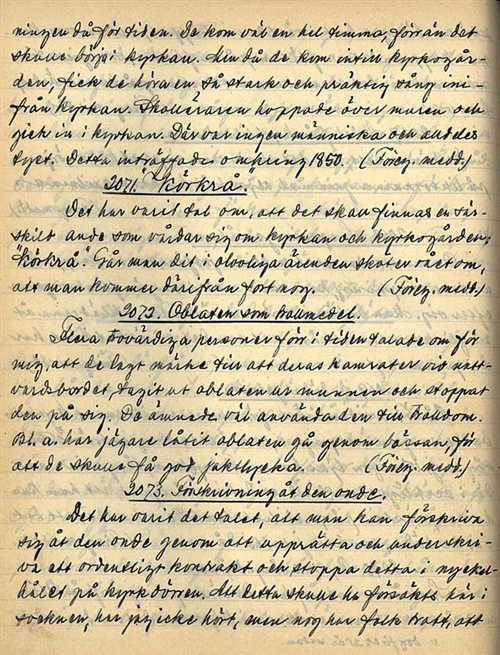 ningen då för tiden. De kom väl en hel timma, förrän det
skulle börja i kyrkan. Men då de kom intill kyrkogår-
den, fick de höra en så stark och präktig sång ini-
från kyrkan. Skolläraren hoppade över muren och
gick in i kyrkan. Där var ingen människa och alldeles
tyst. Detta inträffade omkring 1850. (Föreg. medd.)
2071. "Körkrå."
Det har varit tal om, att det skall finnas en sär-
skilt ande som vårdar sig om kyrkan och kyrkogården,
"Körkrå". Går man dit i olovliga ärenden sköter rået om,
att man kommer därifrån fort nog. (Föreg. medd.)
2072. Oblaten som trollmedel.
Flera trovärdiga personer förr i tiden talade om för
mig, att de lagt märke till att deras kamrater vid natt-
vardsbordet, tagit ut oblaten ur munnen och stoppat
den på sig. De ämnade väl använda den till trolldom.
Bl. a. har jägare låtit oblaten gå genom bössan, för
att de skulle få god jaktlycka. (Föreg. medd.)
2073. Förskrivning åt den onde.
Det har varit det talet, att man kan förskriva
sig åt den onde genom att upprätta och underskri-
va ett ordentligt kontrakt och stoppa detta i nyckel-
hålet på kyrkdörren. Att detta skulle ha försökts här i
socknen, har jag icke hört, men nog har folk trott, att